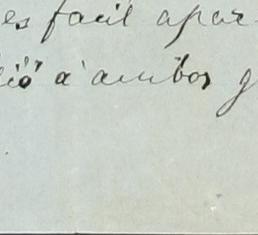 es facil apar-
ió à ambos g